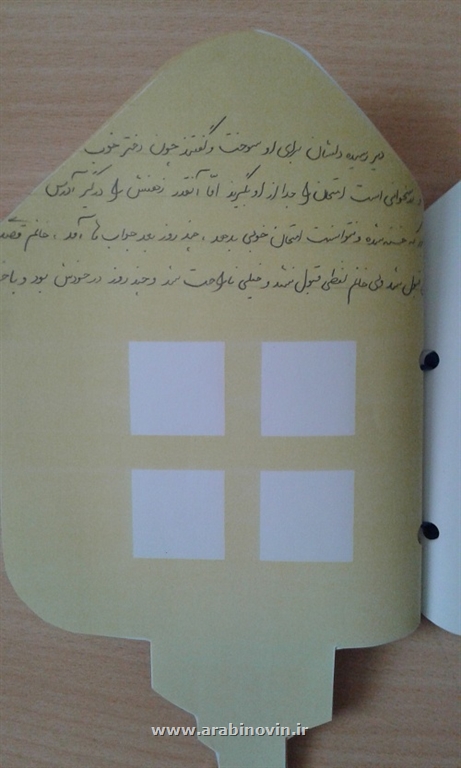 دیر رسیده دلشان برای او سوخت و گفتند چون دختر خوب
و درسخوانی است امتحان را جدا از او بگیرند امّا آنقدر ذهنش را درگیر آدرس
که خسته شده و نتوانست امتحان خوبی بدهد . چند روز بعد جواب ها آمد ، خانم
قبول شد ولی خانم لفظی قبول نشد و خیلی ناراحت شد و چند روز در خودش بود و با
www.arabinovin.ir